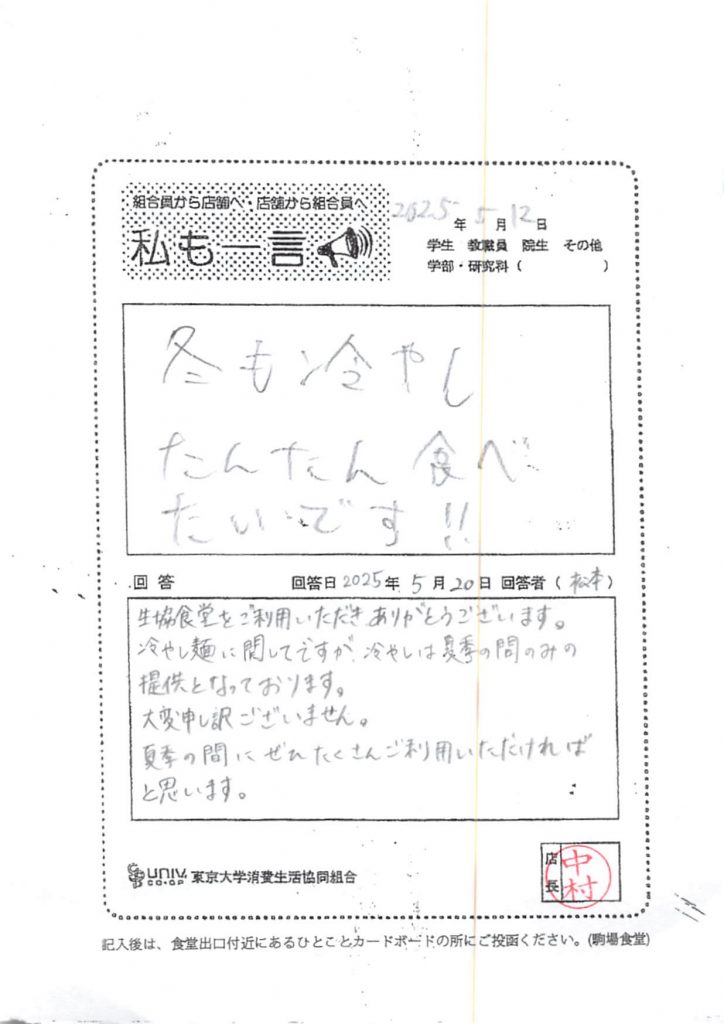 組合員から店舗へ・店舗から組合員へ
私も一言
2025 5 12
年 月 日
学生 教職員 院生 その他
学部・研究科( )
冬も冷やし
たんたん食べ
たいです!!
回答 回答日2025年5月20日 回答者(松本)
生協食堂をご利用いただきありがとうございます。
冷やし麺に関してですが、冷やしは夏季の間のみの
提供となっております。
大変申し訳ございません。
夏季の間にぜひたくさんご利用いただければ
と思います。
UNIV.
CO-OP
東京大学消費生活協同組合
店長
中村
記入後は、食堂出口付近にあるひとことカードボードの所にご投函ください。(駒場食堂)